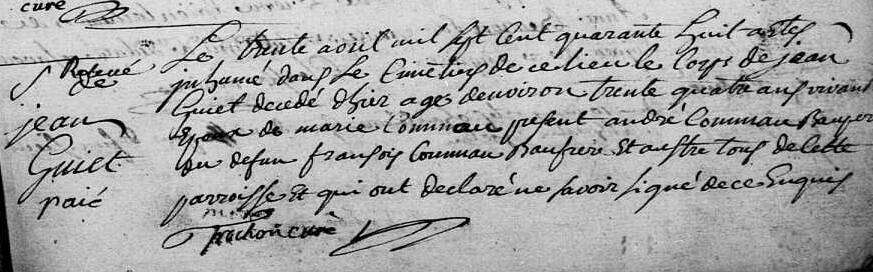 cure
Le trente aoust mil sept Cent quarante huit a etes
inhumé dans le Cimetiere de ce lieu le Corps de jean
Guiet decedé d'hier age denviron trente quatre ans vivant
Epoux de marie Commau present andré Commau Beauper
du defun françois Commau Baufrere Et autre tous de cette
parroisse Et qui ont declaré ne savoir signé de ce Enquis
S
de
jean
Guiet
paié
curé